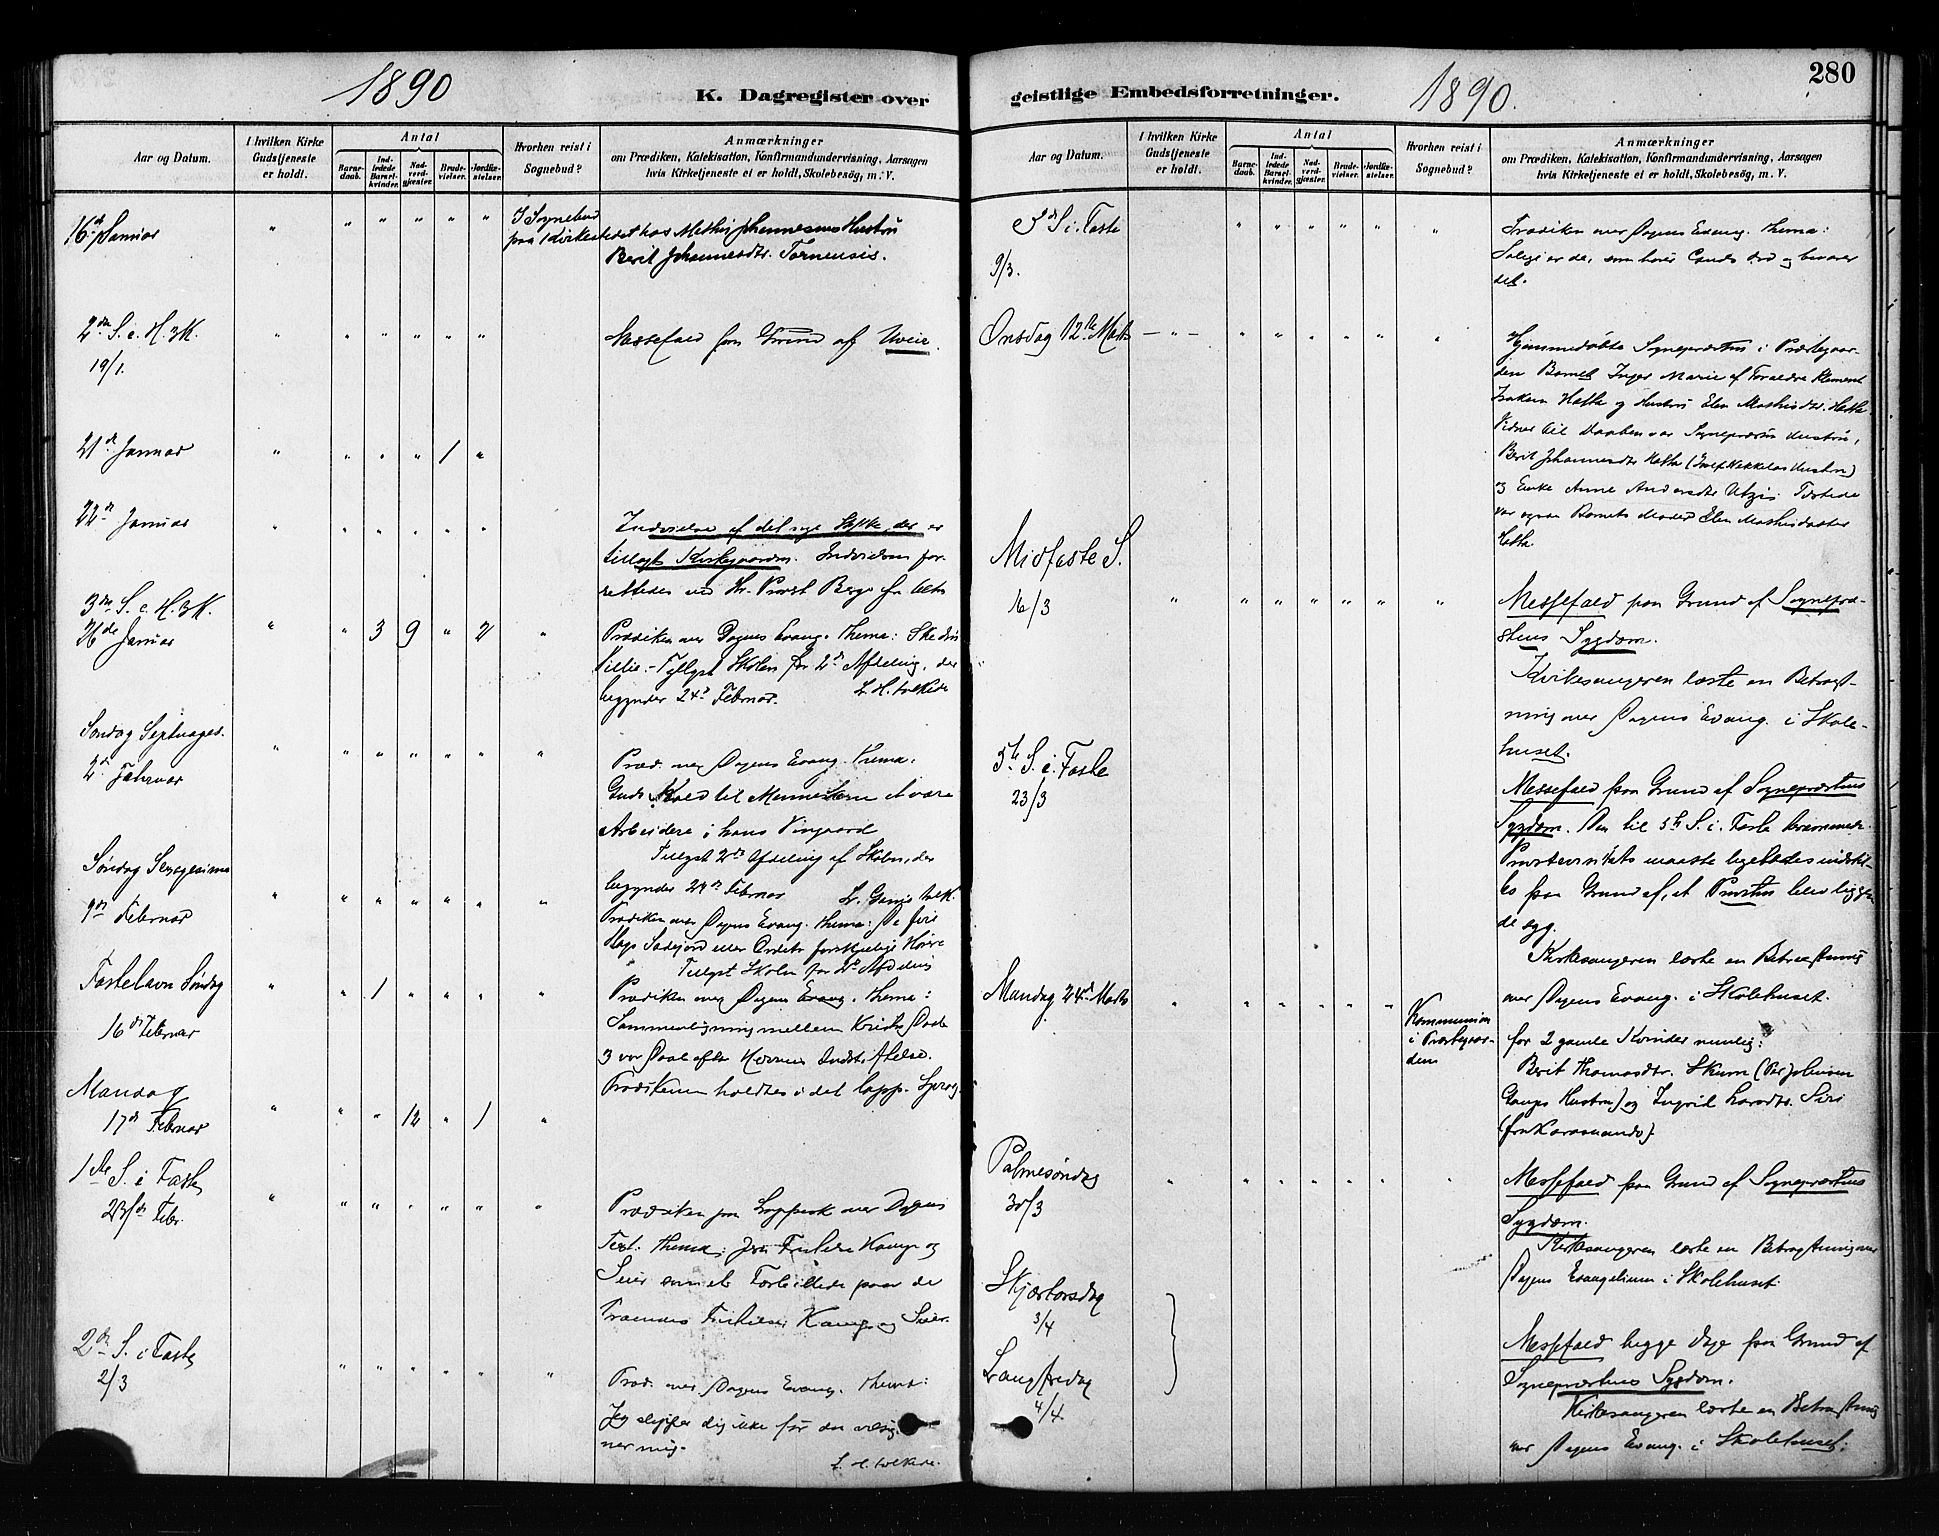 1890
K. Dagregister over
Aar og Datum.
I hvilken Kirke
Gudstjeneste
er holdt.
Antal
Barne-
daab.
Ind-
ledede
Barsel-
kvinder.
Nad-
verd-
gjæster.
Brude-
vielser.
Jordfæ-
stelser.
Hvorhen reist i
Sognebud?
Anmærkninger
om Prædiken, Katekisation, Konfirmandundervisning, Aarsagen
hvis Kirketjeneste ei er holdt, Skolebesøg, m. V.
16de Januar
I Sognebud
paa Kirkestedet hos Mathis Johannesens Hustru
Berit Johannesdtr. Tornensis.
2den S. e. H. 3 K.
19/1.
Messefald paa Grund af Uveir.
21de Januar
1
22de Januar
Indvielse af det nye Stykke, der er
tillagt Kirkegaarden. Indvielsen for-
rettedes ved Hr. Provst Berge fra Alten
3die S. e. H. 3 K.
26de Januar
3 9 2
Prædiken over Dagens Evang. Thema: Ske din
Villie. - Tyllyst Skolen for 2den Afdeling, der
begynder 24de Februar. L. H. tolkede
Søndag Septuages.
2den Februar
Præd. over Dagens Evang. Thema:
Guds Kald til Menneskene at være
Arbeidere i hans Vingaard
Tillyst 2den Afdeling af Skolen, der
begynder 24de Februar
Søndag Sexagesima
9de Februar
Prædiken over Dagens Evang. Thema: De fire
Slags Sædejord eller Ordets forskjellige Hørere
Tillyst Skolen for 2de Afdeling
Fastelavn Søndag
16de Februar
1
Prædiken over Dagens Evang. Thema:
Sammenligning mellem Kristi Daab
og vor Daab efter Herrens Indstiftelse.
Prædikenen holdtes i det lapp. Sprog.
Mandag
17de Februar
12 1
1ste S. i Faste
23/de Febr.
Prædiken paa Lappisk over Dagens
Text: Thema: Jesu Fristelse Kamp og
Seier som et Forbillede paa de
Frommes Fristelse, Kamp og Seier.
2den S. i Faste
2/3
Præd. over Dagens Evang. Thema:
Jeg slipper dig ikke før du velsig-
ner mig.
L. H. tolkede.
geistlige Embedsforretninger.
1890.
280
Aar og Datum.
I hvilken Kirke
Gudstjeneste
er holdt.
Antal
Barne-
daab.
Ind-
ledede
Barsel-
kvinder.
Nad-
verd-
gjæster.
Brude-
vielser.
Jordfæ-
stelser.
Hvorhen reist i
Sognebud?
Anmærkninger
om Prædiken, Katekisation, Konfirmandundervisning, Aarsagen
hvis Kirketjeneste ei er holdt, Skolebesøg, m. V.
3die S. i. Faste
9/3.
Prædiken over Dagens Evang. Thema:
Salige er de, som hører Guds Ord og bevarer
det.
Onsdag 12te Marts
Hjemmedøbte Sognepræsten i Præstegaar-
den Barnet Inger Marie af Forældre Klemet
Isaksen Hætta og Hustru Elen Mathisdtr. Hætta
Vidner til Daaben var Sognepræstens Hustru,
Berit Johannesdtr Hætta
og Enke Anne Andersdtr Utsi. Tilstede
var ogsaa Barnets Moder Elen Mathisdatter
Hætta.
Midfaste S.
16/3
Messefald paa Grund af Sognepræ-
stens Sygdom.
Kirkesangeren læste en Betragt-
ning over Dagens Evang. i Skole-
huset.
5te S. i. Faste
23/3
Messefald paa Grund af Sognepræstens
Sygdom. Den til 5te S. i. Faste berammede
Provstevisitats maatte ligeledes indstil-
les paa Grund af, at Provsten blev liggen-
de syg.
Kirkesangeren læste en Betragtning
over Dagens Evang. i Skolehuset.
Mandag 24de Marts
Kommunion
i Præstegaar-
den
for 2 gamle Kvinder nemlig:
Berit Thomasdtr. Skum (Per Johnsen
Gaups Hustru) og Ingrid Larsdtr. Siri
(fra Karasmando).
Palmesøndag
30/3
Messefald paa Grund af Sognepræstens
Sygdom.
Kirkesangeren læste en Betragtning over
Dagens Evangelium i Skolehuset.
Skjærtorsdag
3/4
Langfredag
4/4.
Messefald begge Dage paa Grund af
Sognepræstens Sygdom.
Kirkesangeren læste en Betragtning
over Dagens Evang. i Skolehuset.